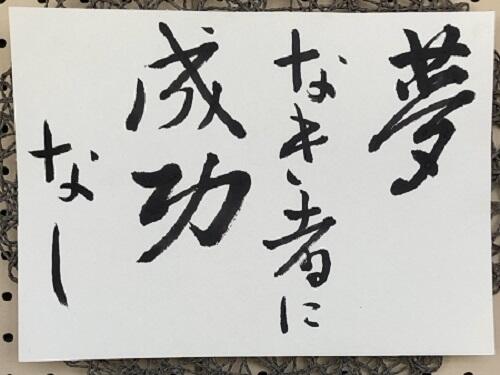 夢
なき者に
成功
なし